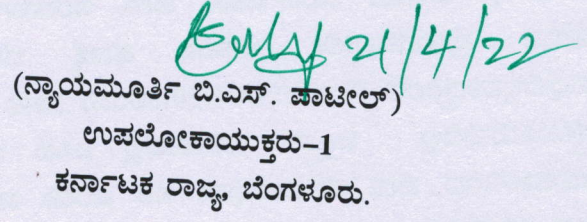 21/4/22
(ನ್ಯಾಯಮೂರ್ತಿ ಬಿ.ಎಸ್. ಪಾಟೀಲ್)
ಉಪಲೋಕಾಯುಕ್ತರು-1
ಕರ್ನಾಟಕ ರಾಜ್ಯ, ಬೆಂಗಳೂರು.